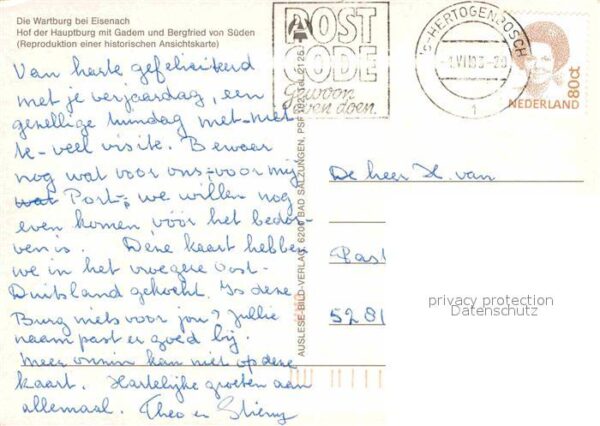 Die Wartburg bei Eisenach
Hof der Hauptburg mit Gadem und Bergfried von Süden
(Reproduktion einer historischen Ansichtskarte)
Van harte gefeliciteerd
met je verjaardag, een
gezellige middag met-niet
te-veel visite. Bewaar
nog wat voor ons-voor mij
wat Port-, we willen nog
even komen vóór het bedor-
ven is. Deze kaart hebben
we in het vroegere Oost-
Duitsland gekocht. Is deze
Burg niets voor jou? Jullie
naam past er goed bij.
Meer onnin kan niet op deze
kaart. Hartelijke groeten aan
allemaal. Theo en
POST
CODE
Gewoon
even doen.
'S-HERTOGENBOSCH
1
NEDERLAND
80ct
AUSLESE-BILD-VERLAG, 6200 BAD SALZUNGEN, PSF
De heer H. van
Past
5281
privacy protection
Datenschutz